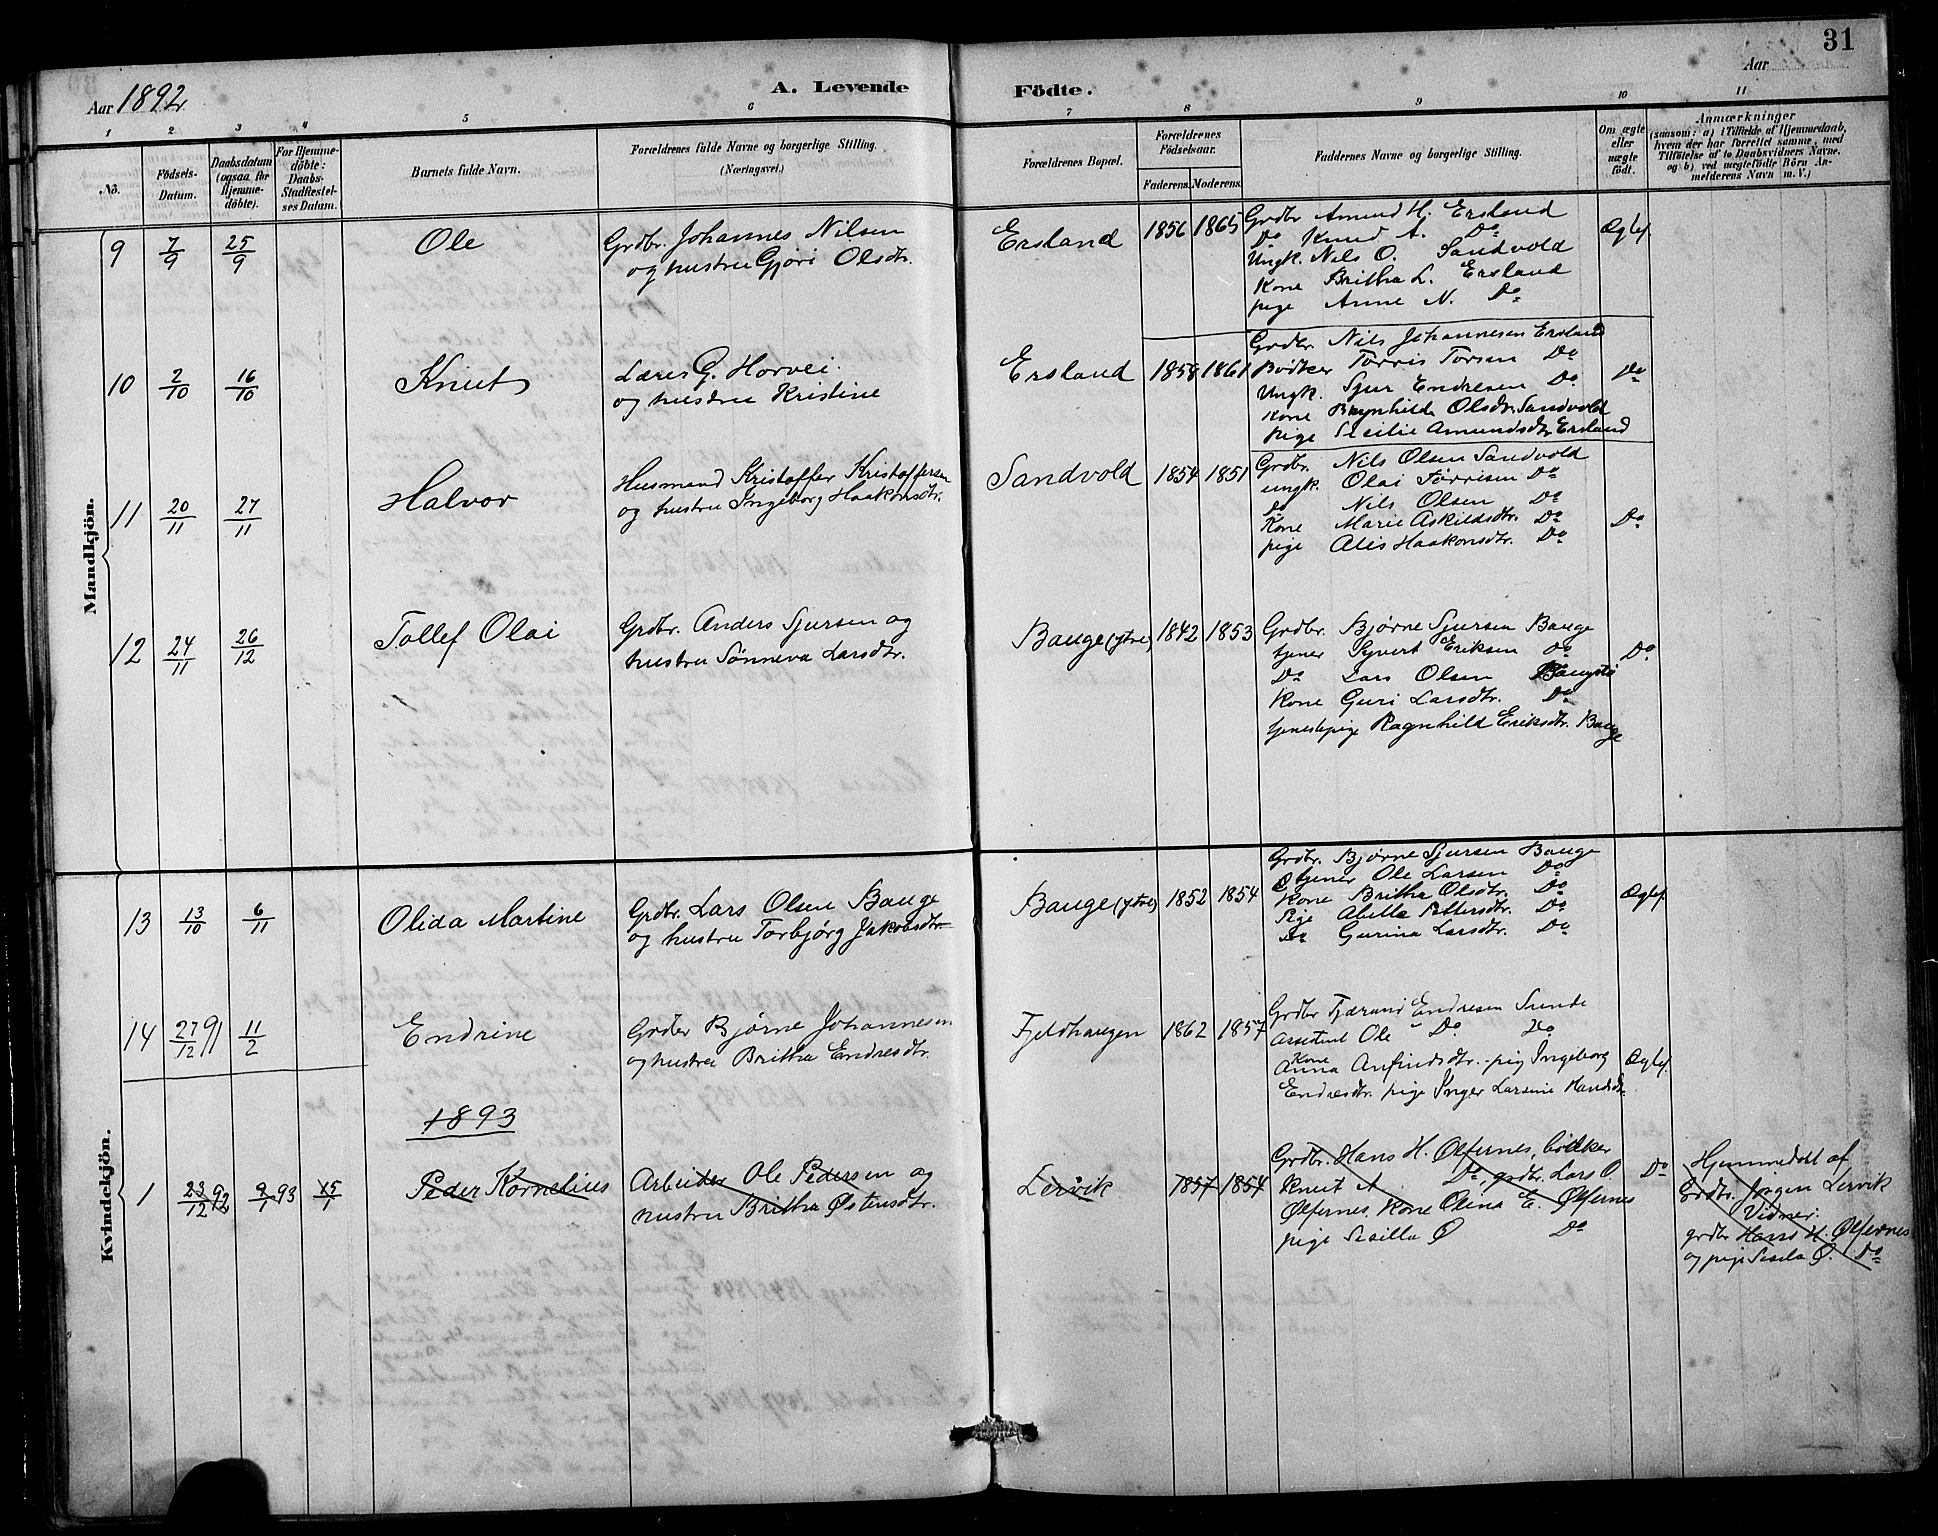 31
Aar 1892.
A. Levende Födte.
Aar
1 2 3 4 5 6 7 8 9 10 11
No.
Födsels-Datum.
Daabsdatum (ogsaa for Hjemme-döbte).
For Hjemme-döbte: Daabs-Stadfæstel-ses Datum.
Barnets fulde Navn.
Forældrenes fulde Navne og borgerlige Stilling.
(Næringsvei.)
Forældrenes Bopæl.
Forældrenes Födselsaar.
Faderens. Moderens.
Faddernes Navne og borgerlige Stilling.
Om ægte eller uægte födt.
Anmærkninger
(saasom: a) i Tilfælde af Hjemmedaab, hvem der har forrettet samme, med Tilföielse af to Daabsvidners Navne, og b) ved uægtefödte Börn Anmelderens Navn m. V.)
Mandkjön.
9 7/9 25/9 Ole
Grdbr. Johannes Nilsen
og hustru Gjøri Olsdtr.
Ersland 1856 1865
Grdbr Amund H. Ersland
Do Knud A. Do
Ungk. Nils O. Sandvold
Kone Britha L. Ersland
pige Anne N. Do
Ægtef.
10 2/10 16/10 Knut
Lærer G. Horvei.
og hustru Kristine
Ersland 1858 1861
Grdbr. Nils Johannesen Ersland
Bødker Torris Torsen Do
Ungk. Sjur Endresen Do
Kone Brynhilde Olsdtr. Sandvold
pige Sicilie Amundsdtr Ersland
Do
11 20/11 27/11 Halvor
Husmand Kristoffer Kristoffersen
og hustru Ingeborg Haakonsdtr.
Sandvold 1854 1851
Grdbr. Nils Olsen Sandvold
ungk. Olai Tørrisen Do
Do Nils Olsen Do
Kone Marie Askildsdtr. Do
pige Alis Haakonsdtr. Do
Do
12 24/11 26/12 Tollef Olai
Grdbr. Anders Sjursen og
hustru Sønneva Larsdtr.
Bauge (ytre) 1842 1853
Grdbr. Bjørne Sjursen Bauge
tjener Syvert Eriksen Do
Do Lars Olsen
Kone Guri Larsdtr. Do
tjenestepige Ragnhild Eriksdtr. Bauge
Do
Kvindekjön.
13 13/10 6/11 Olida Martine
Grdbr. Lars Olsen Bauge
og hustru Torbjørg Jakobsdtr
Bauge (ytre) 1852 1854
Grdbr. Bjørne Sjursen Bauge
tjener Ole Larsen Do
Kone Britha Olsdtr. Do
Pige Abella Pettersdtr. Do
Do Gurina Larsdtr. Do
Ægtef.
14 27/12 91 11/2 Endrine
Grdbr Bjørne Johannesen
og hustru Britha Endresdtr.
Fjeldhaugen 1862 1857
Grdbr Tjerand Endresen Sunde
Assistent Ole " Do Do
Kone
Anna Anfindsdtr. pig Ingeborg
Endresdtr. pige Inger Larsine Hansdtr.
Ægtef.
1893
1 23/12 92 9/1 93 15/1 Peder Kornelius
Arbeider Ole Pedersen og
hustru Britha Østensdtr.
Lervik 1857 1854
Grdbr. Hans H. Ølfernes, bødker
Knut A Do, grdbr. Lars O.
Ølfernes, Kone Olina E. Ølfernes
pige Sesilla Ø Do
Do
Hjemmedøbt af
Grdbr. Jørgen Lervik
Vidner:
grdbr Hans H. Ølfernes
og pige Sesila Ø. Do